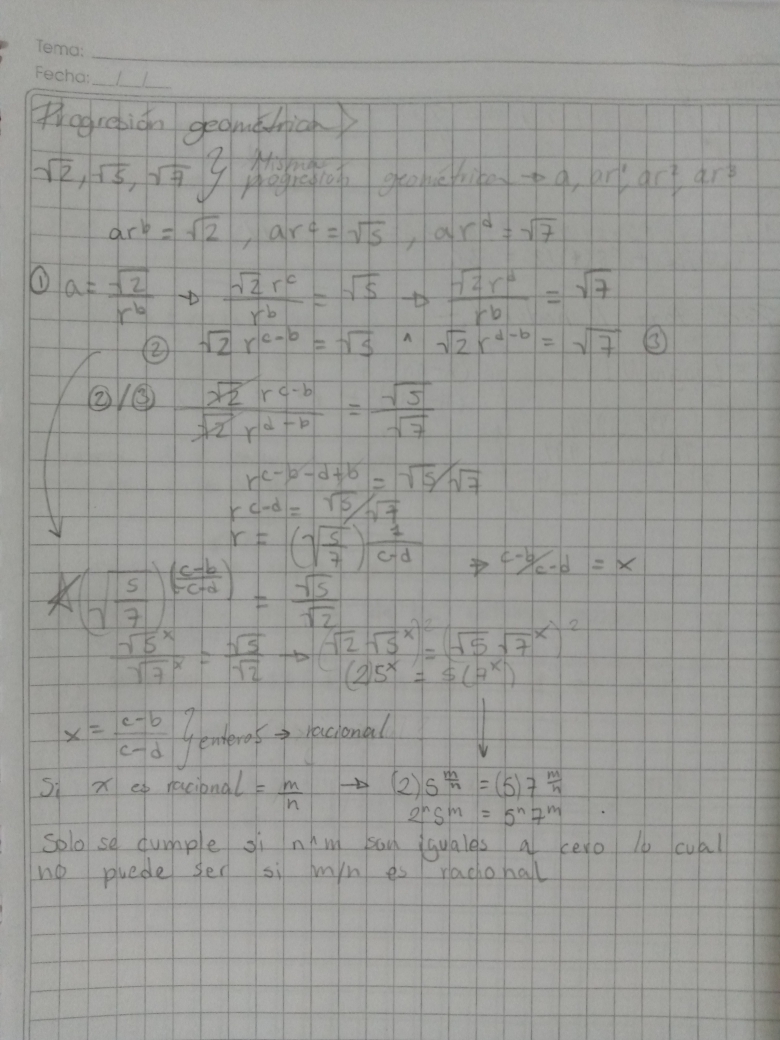 Tema:
Fecha: / /
Progresión geométrica>
√2, √5, √7 } Misma progresión geométrica → a, ar¹, ar², ar³
ar^b = √2, ar^c = √5, ar^d = √7
① a = √2/r^b → √2 r^c/r^b = √5 → √2 r^d/r^b = √7
② √2 r^(c-b) = √5 ^ √2 r^(d-b) = √7 ③
②/③ √2 r^(c-b)/√2 r^(d-b) = √5/√7
r^(c-b-d+b) = √5/√7
r^(c-d) = √5/√7
r = (√(5/7))^(1/(c-d)) → c-b/c-d = x
(√(5/7))^((c-b)/(c-d)) = √5/√2
√5^x/√7^x = √5/√2 → (√2 √5^x)² = (√5 √7^x)²
(2)5^x = 5(7^x)
x = (c-b)/(c-d) } enteros → racional
Si x es racional = m/n → (2)5^(m/n) = (5)7^(m/n)
2^n 5^m = 5^n 7^m .
Solo se cumple si n^m son iguales a cero lo cual
no puede ser si m/n es racional